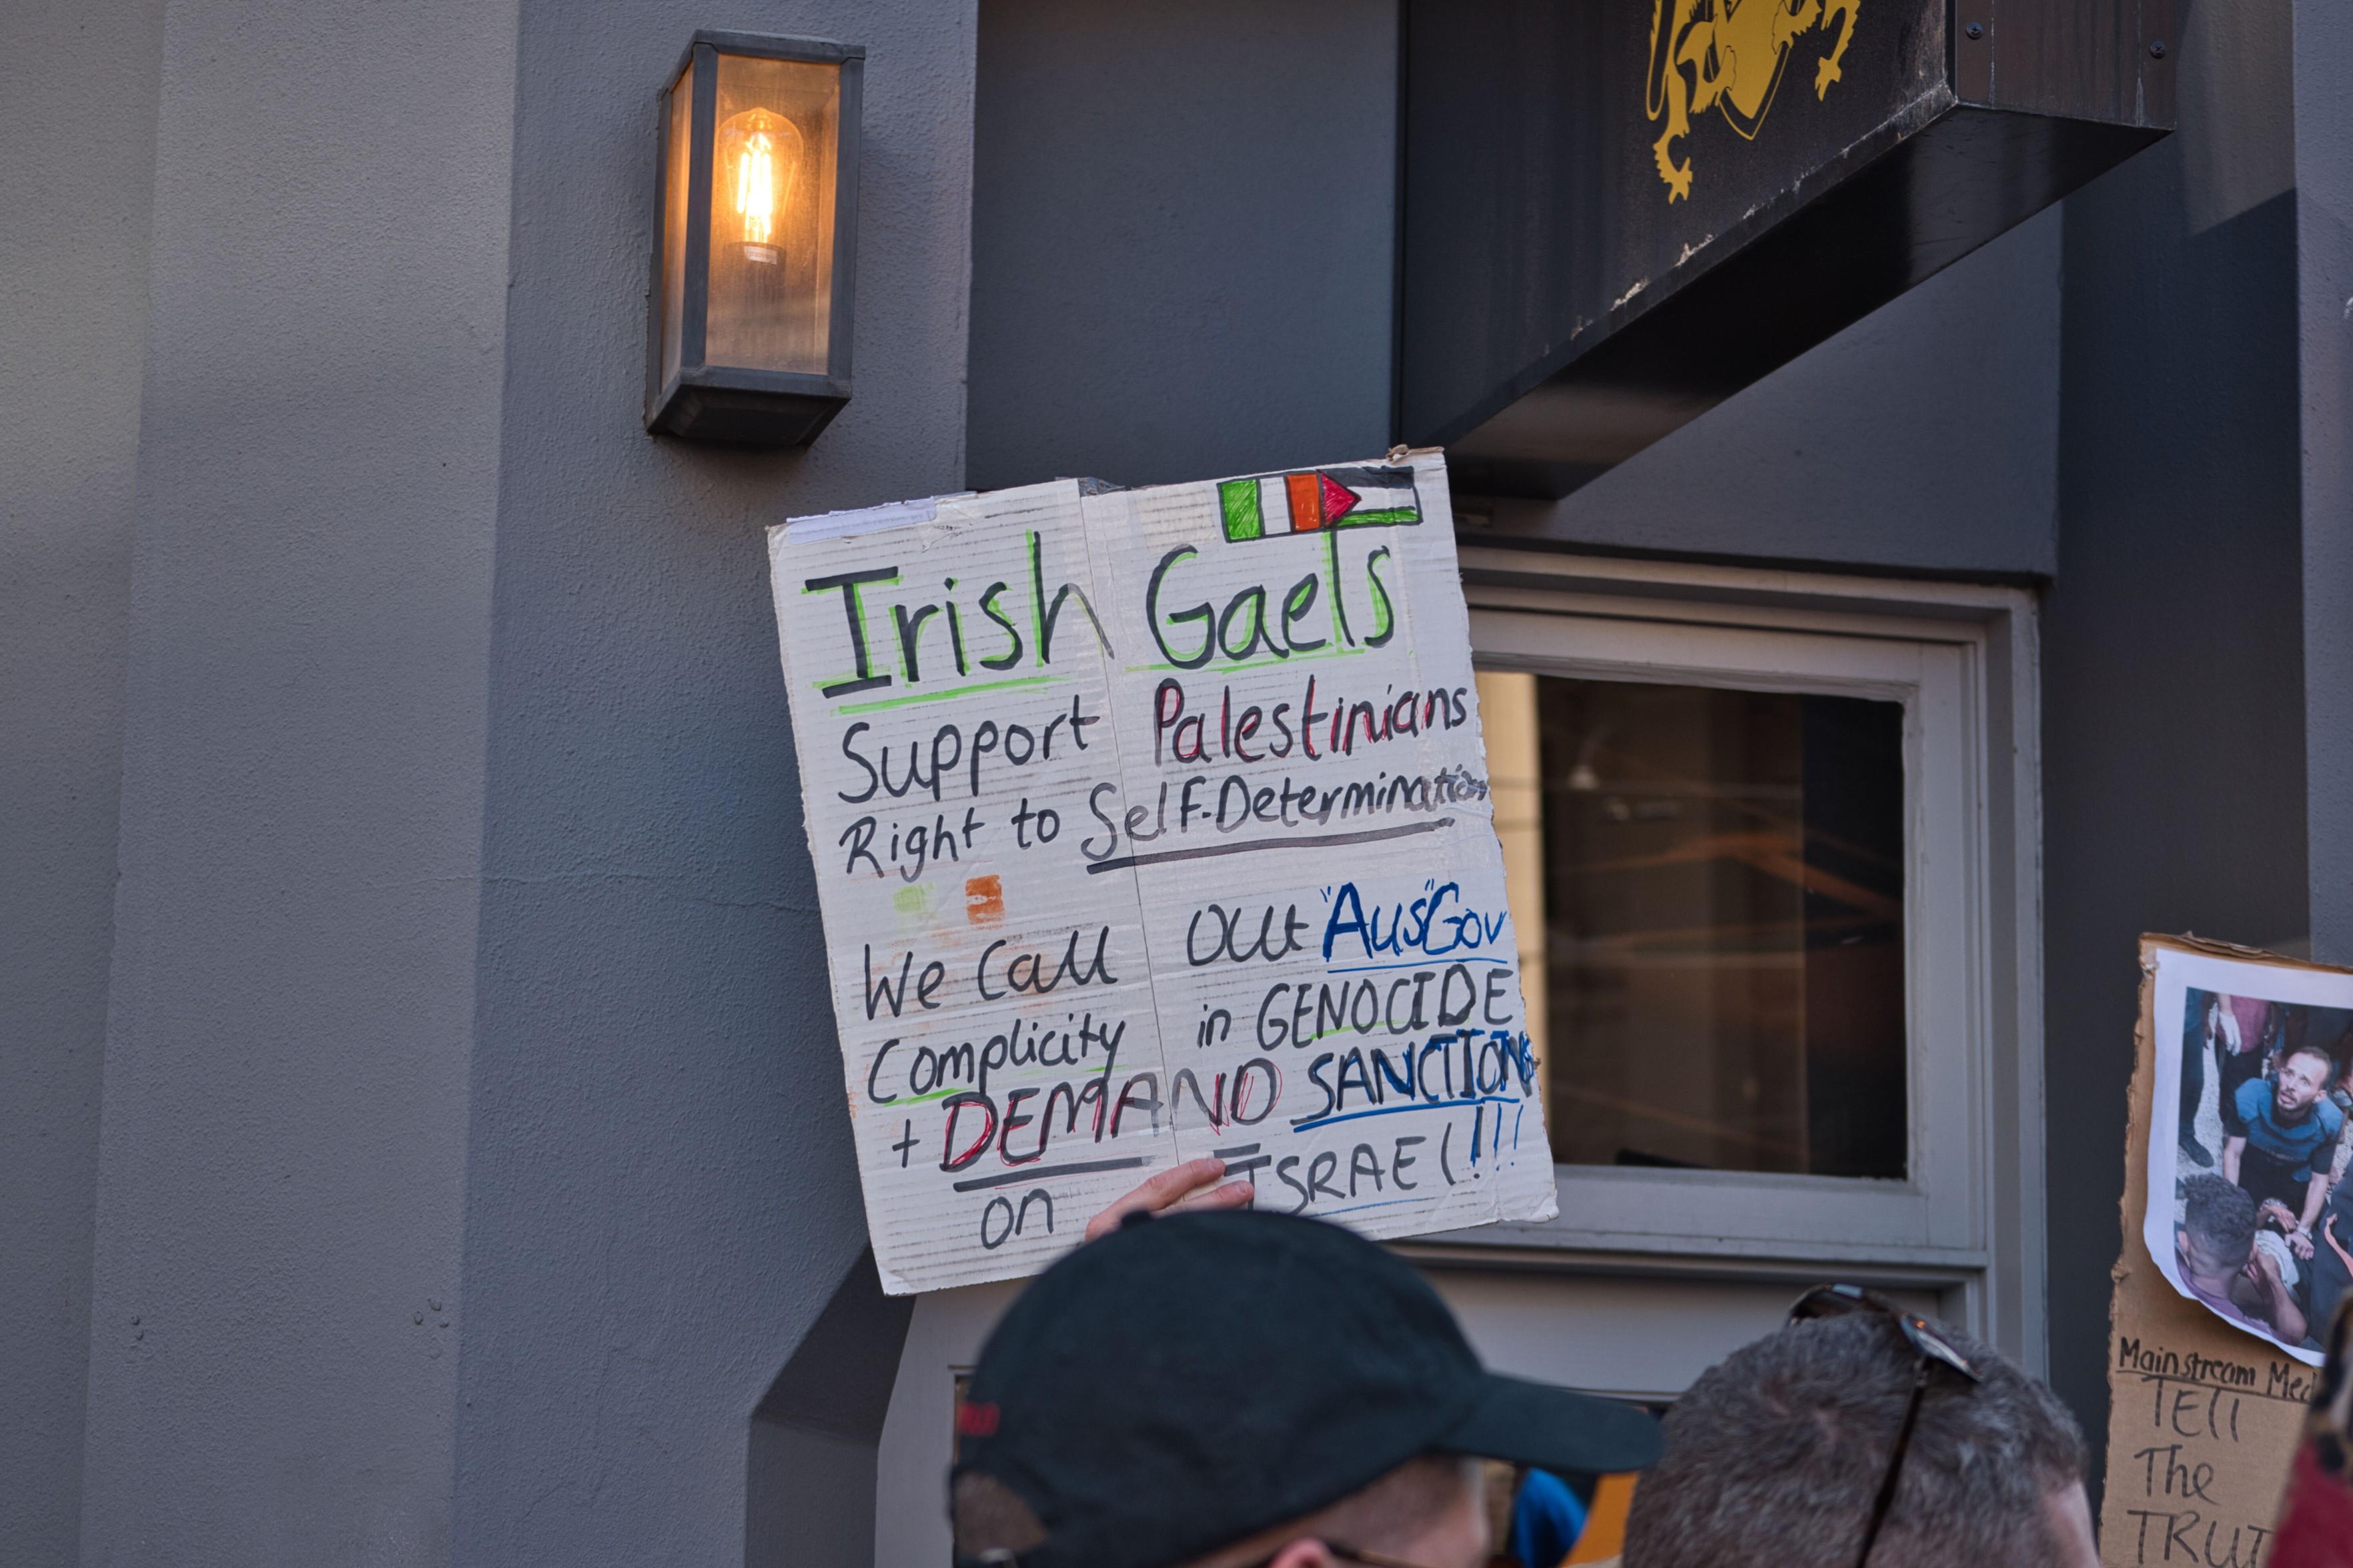 Irish Gaels
Support Palestinians
Right to Self-Determination
We Call Out "Aus"Gov
Complicity in GENOCIDE
+ DEMAND SANCTIONS
on ISRAEL!!!
Mainstream Med
TELL
The
TRUT